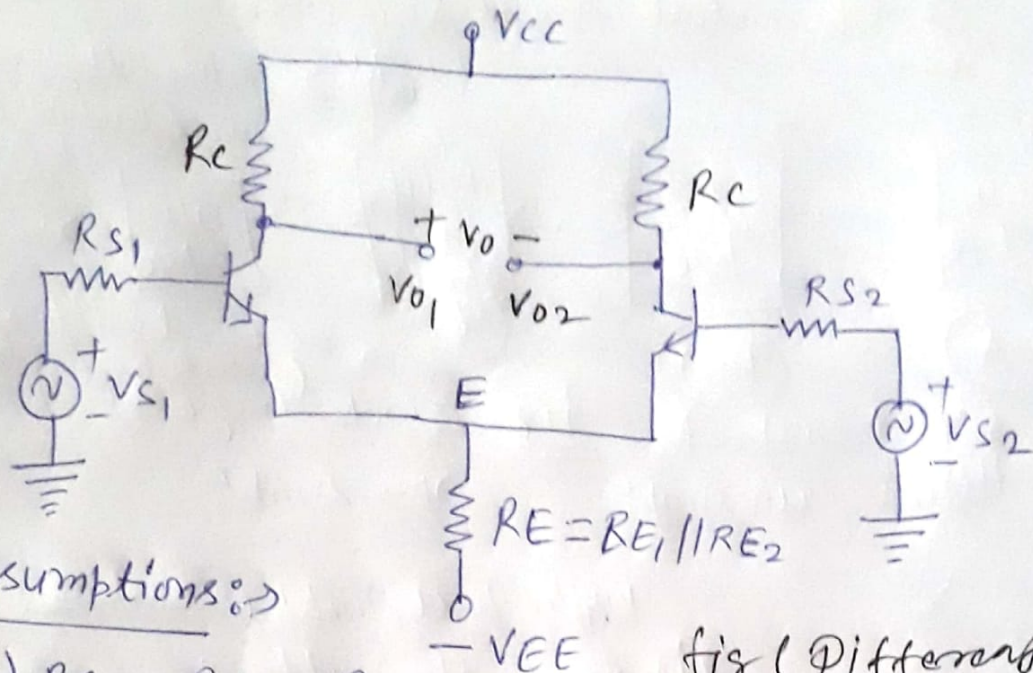 VCC
RC
RC
RS1
+ VO -
VO1
VO2
RS2
+
VS1
-
E
+
VS2
-
RE = RE1 || RE2
sumptions :->
- VEE
fig ( Different